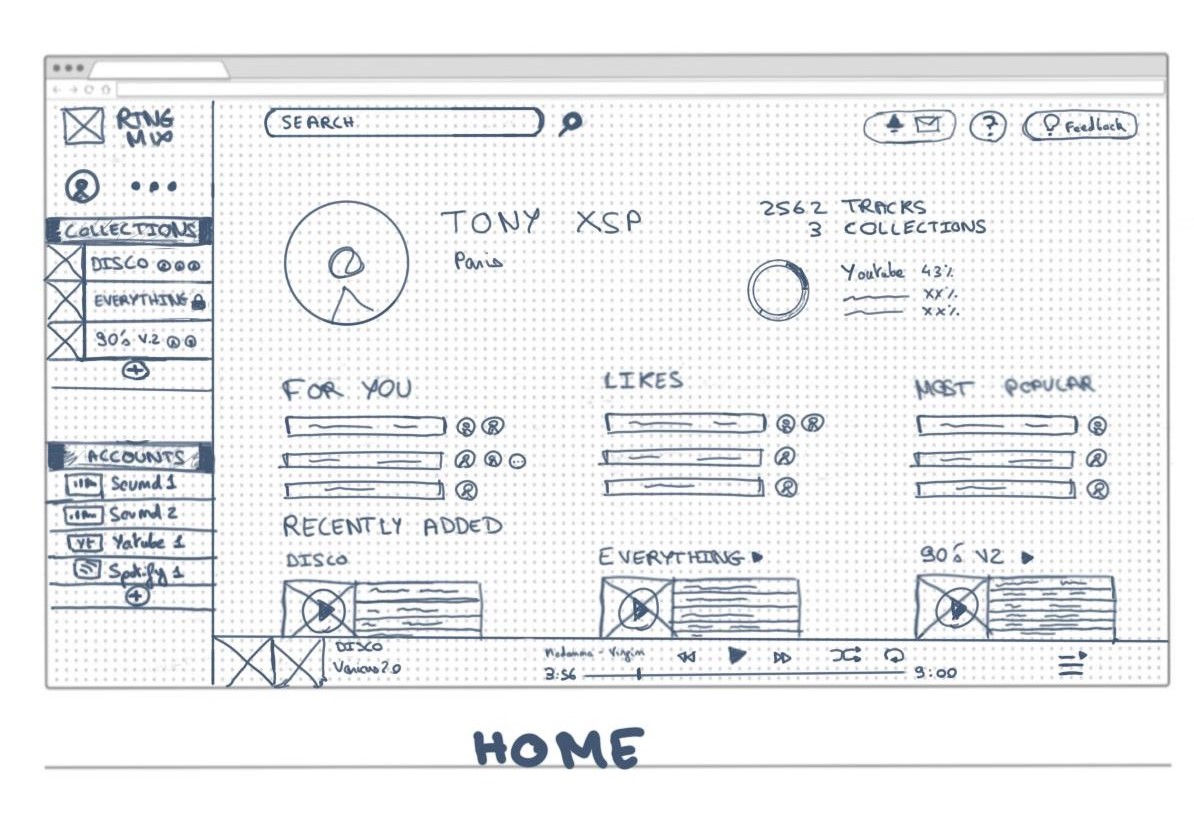 RING
MIX
SEARCH
?
Feedback
COLLECTIONS
DISCO
EVERYTHING
90's V.2
ACCOUNTS
Sound 1
Sound 2
YT Yatube 1
Spotify 1
TONY XSP
Paris
2562 TRACKS
3 COLLECTIONS
Youtube 43%
XX%
XX%
FOR YOU
LIKES
MOST POPULAR
RECENTLY ADDED
DISCO
EVERYTHING
90's V2
DISCO
Various 2.0
Madonna - Virgin
3:56
9:00
HOME